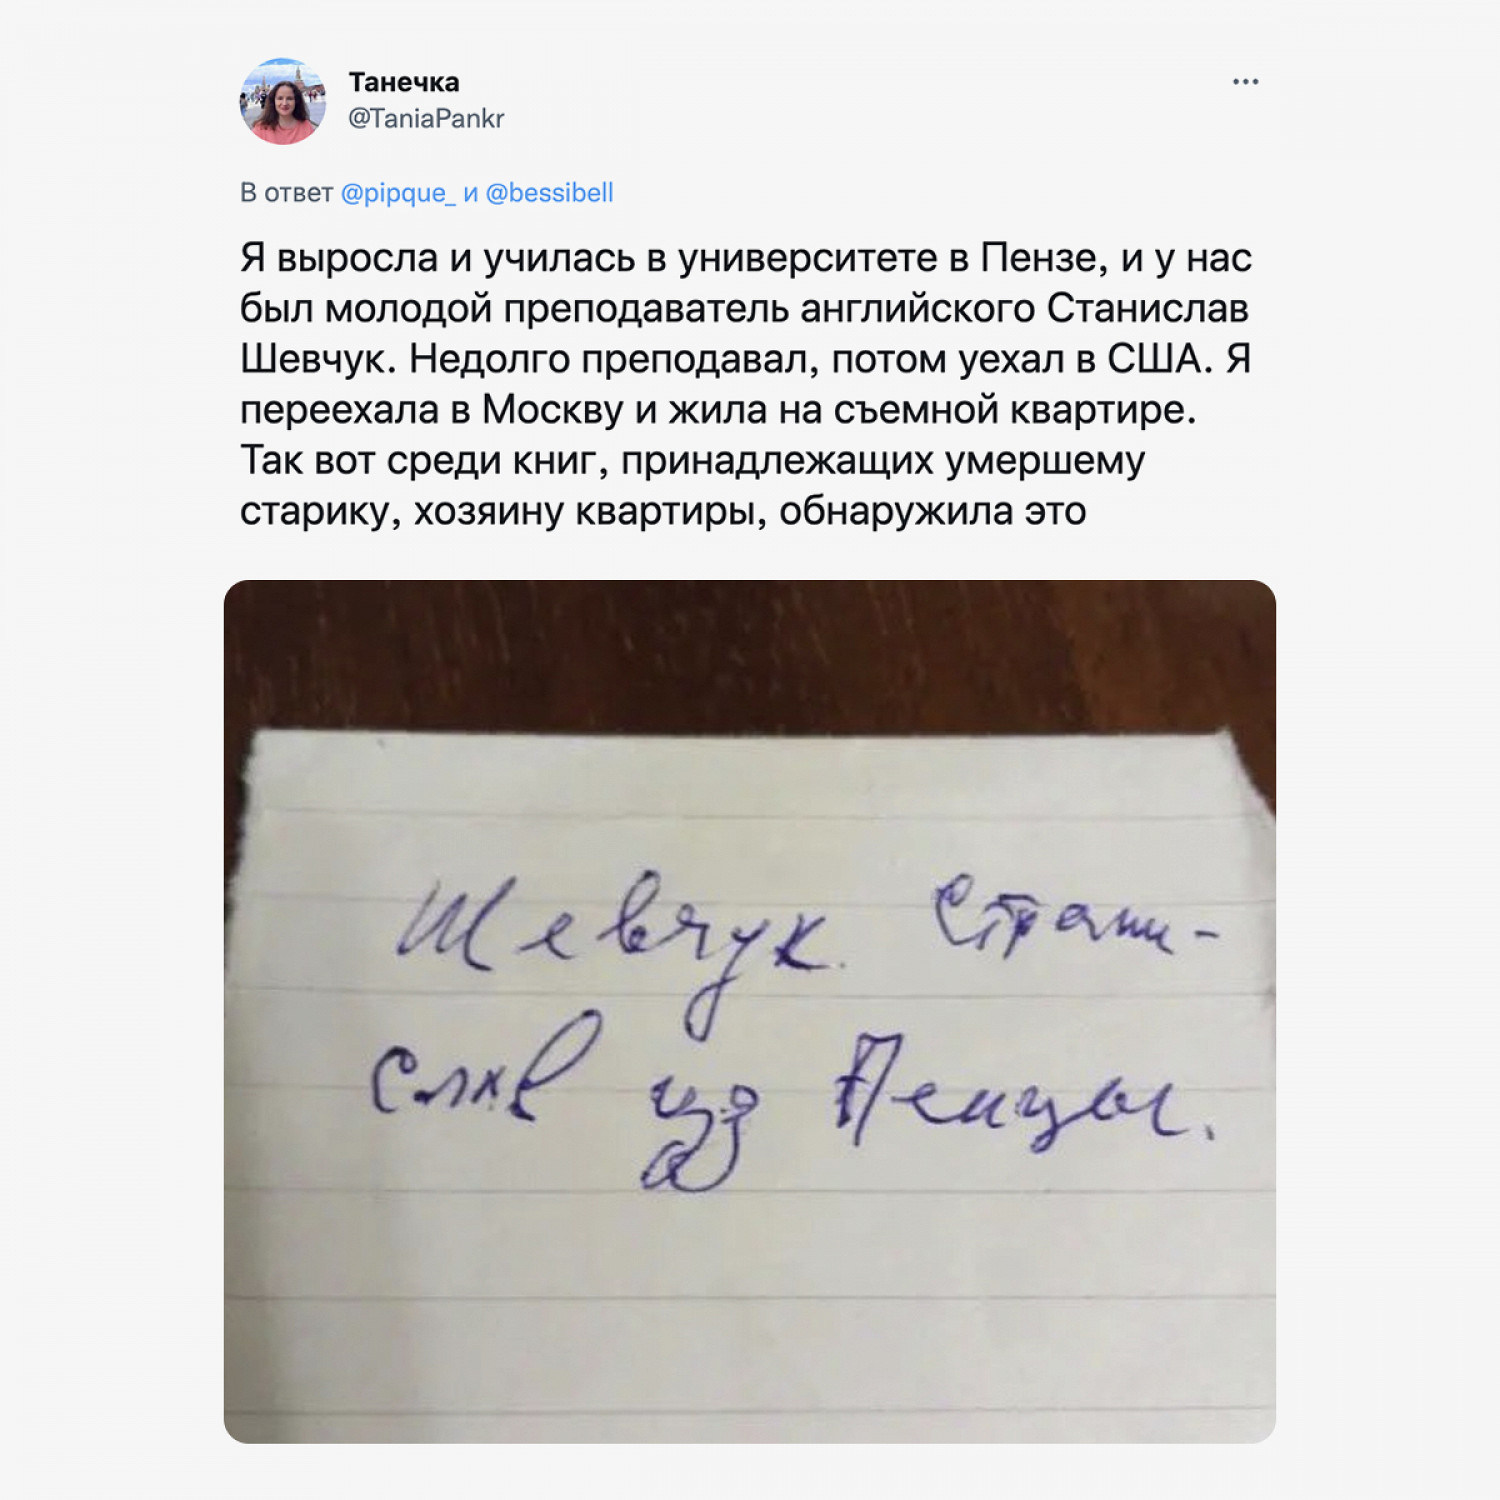 Танечка
@TaniaPankr
В ответ @pipque_ и @bessibell
Я выросла и училась в университете в Пензе, и у нас
был молодой преподаватель английского Станислав
Шевчук. Недолго преподавал, потом уехал в США. Я
переехала в Москву и жила на съемной квартире.
Так вот среди книг, принадлежащих умершему
старику, хозяину квартиры, обнаружила это
Шевчук. Страни-
слав из Пенцы.